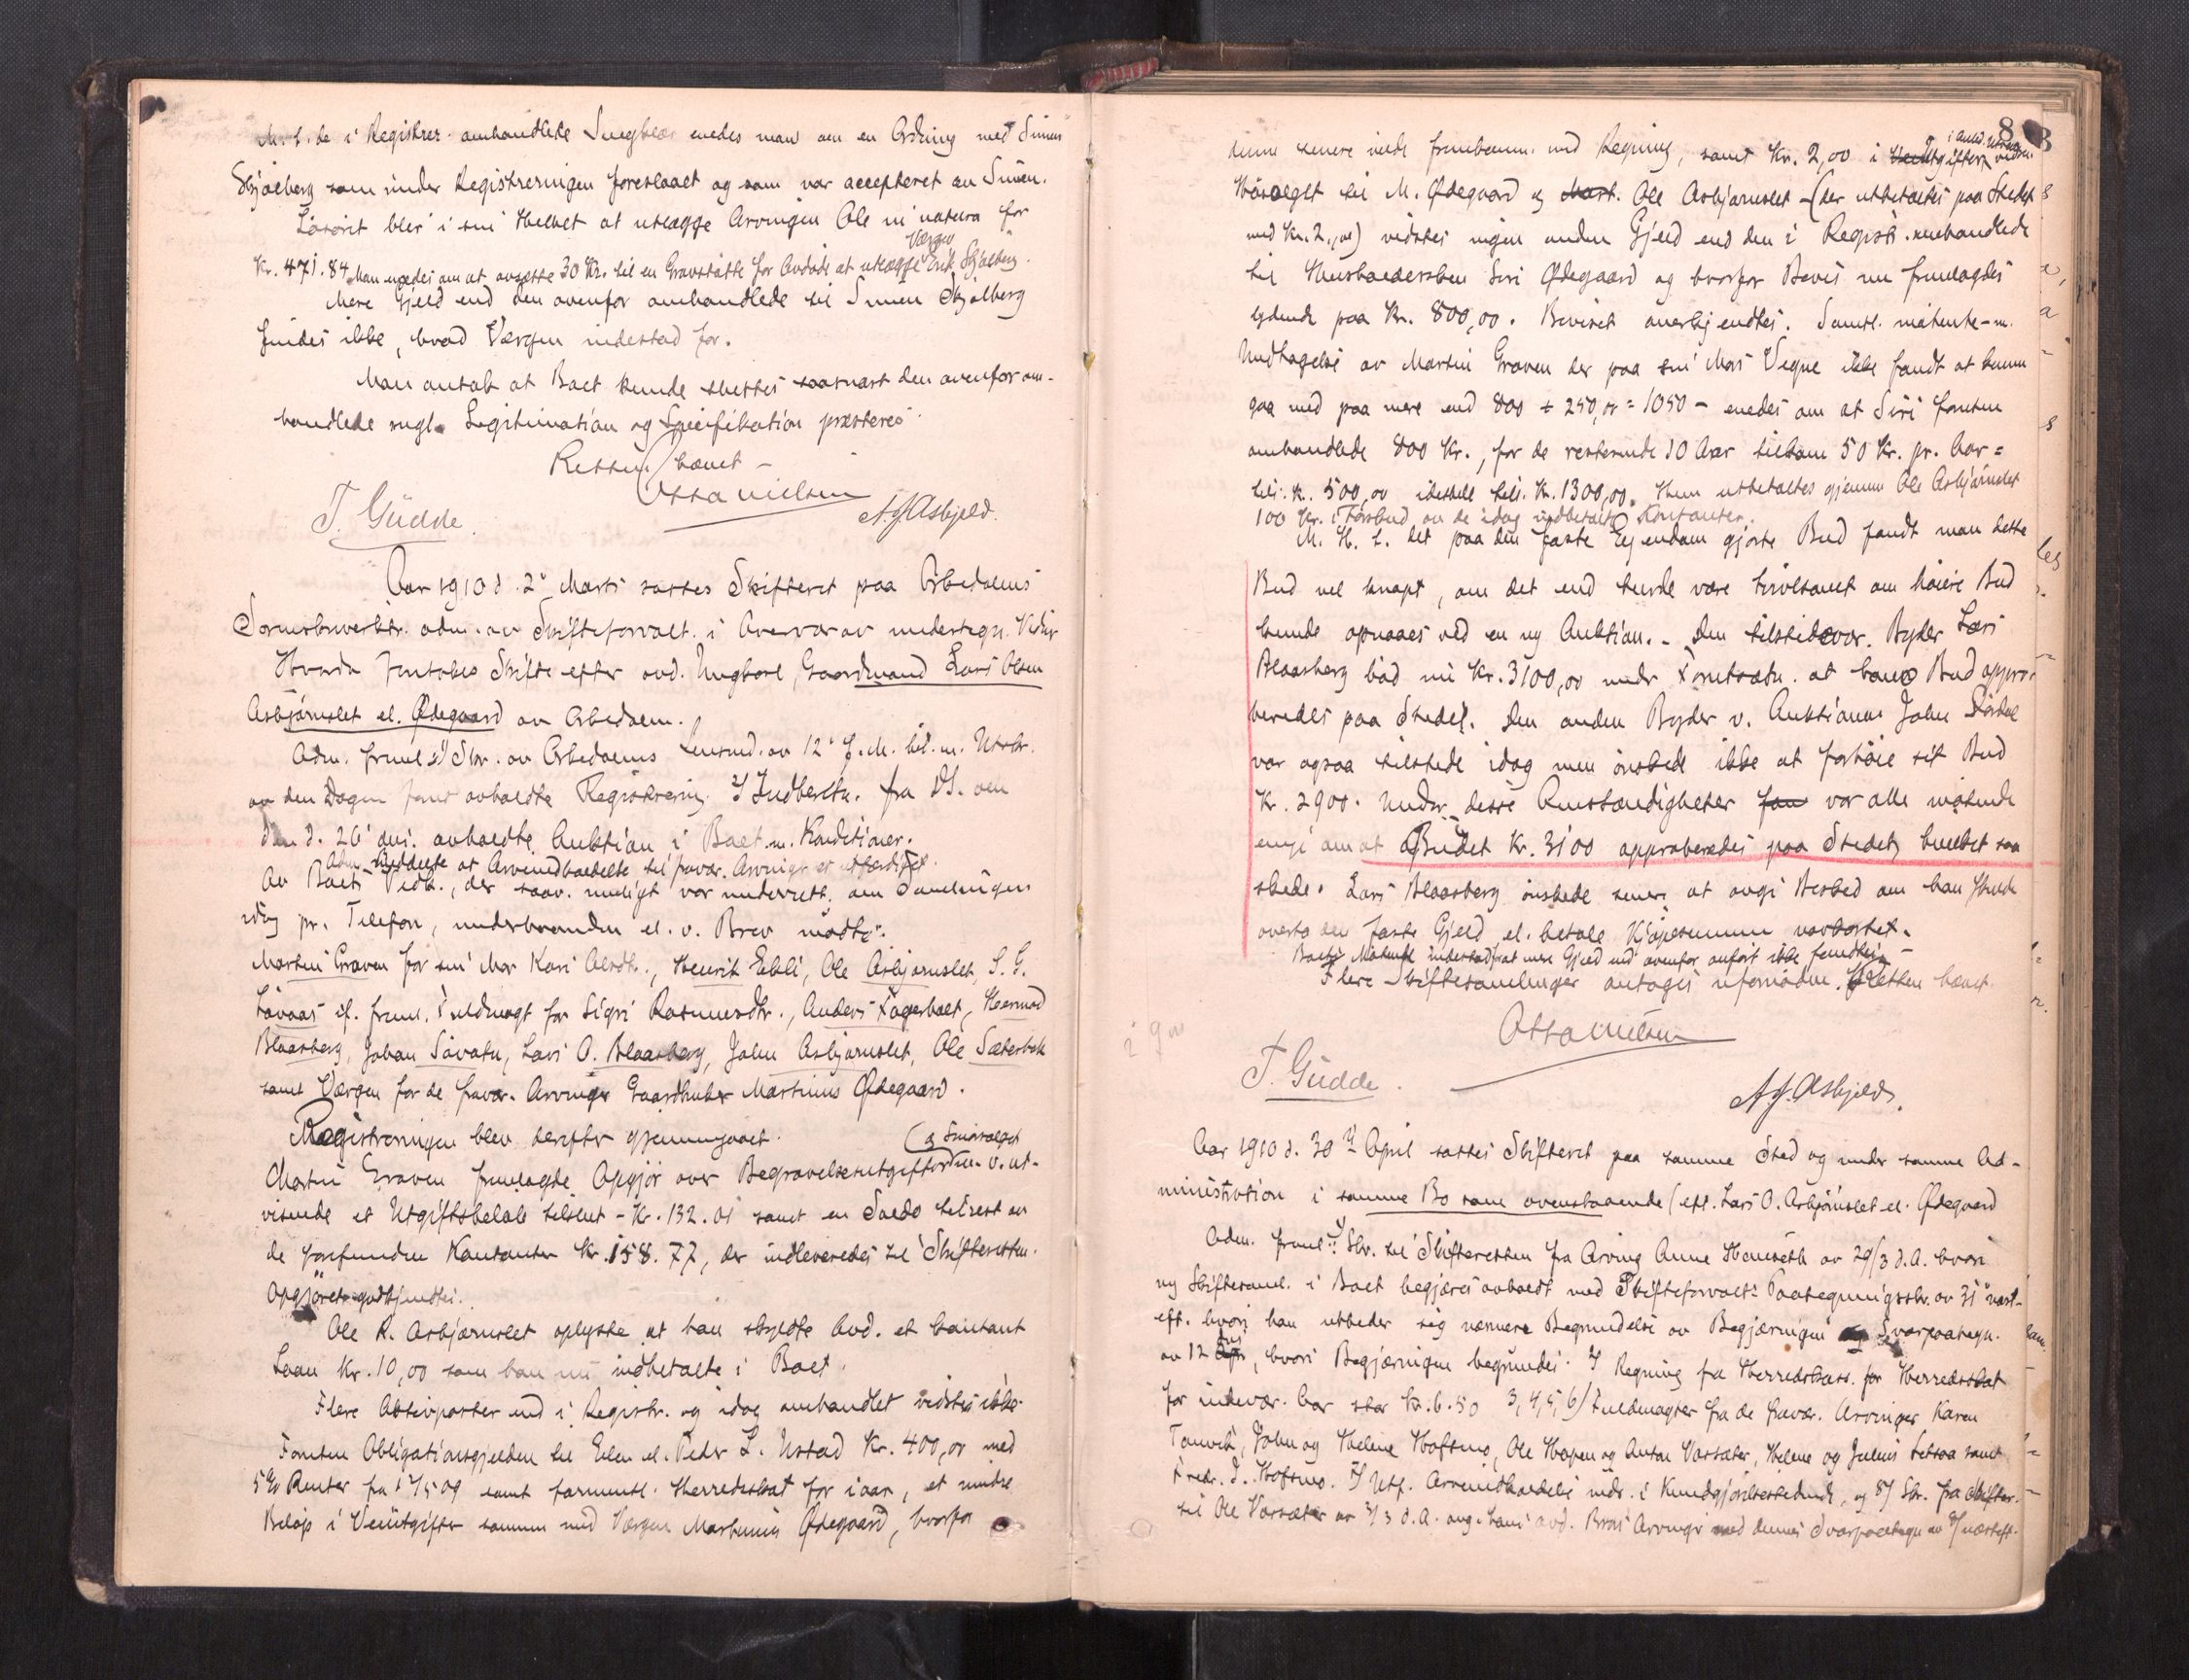 M. H. t. de i Registrer. omhandlede enedes man om en Ordning med Simen
Skjølberg som under Registreringen foreslaaet og som var accepteret av Simen.
Løsøret blev i sin Helhet at utlægge Arvingen Ole in natura for
Kr. 471.84. Man enedes om at avsætte 30 Kr. til en Gravstøtte for Avdøde at utlægge Værgen Erik Skjølberg.
Mere Gjeld end den ovenfor omhandlede til Simen Skjølberg
findes ikke, hvad Værgen indestod for.
Man antok at Boet kunde sluttes saasnart den ovenfor om-
handlede Legitimation og Specifikation præsteres.
Retten hævet –
Otto Nielsen
T. Gudde. A. J. Asbjeld.
Aar 1910 d. 2' Marts sattes Skifteret paa Orkedalens
adm. av Skifteforvalt. i Overvær av undertegn. Vidner
Hvorda foretokes Skifte efter avd. Ungkarl, Gaardmand Lars Olsen
Asbjørnslet el. Ødegaard av Orkedalen.
Adm. freml. 1/ Skr. av Orkedalens Lensmd. av 12' f. M. bil. m. Utskr.
av den Dagen forut avholdte Registrering. 2/ Indberetn. fra DS. om
den d. 26' avholdte Auktion i Boet m. Konditioner.
Adm. meddelte at Arveindkaldelse til fravær. Arvinger er utfærdiget.
Av Boets Vedk., der saav. muligt var underrett. om Samlingen
idag pr. Telefon, underhaanden el. v. Brev mødte:
Martin Graven for sin Mor Kari Olsdtr., Henrik Ekli, Ole Asbjørnslet, S. G.
Løvaas if. freml. Fuldmagt for Sigri Rasmusdtr., Anders Fagerholt,
Blaasberg, Johan Sāvatn, Lars O. Blaasberg, John Asbjørnslet, Ole Sæterbak
samt Værgen for de fravær. Arvinger Gaardbruker Martinus Ødegaard.
Registreringen blev derefter gjennemgaaet.
Martin Graven fremlagde Opgjør over Begravelsesutgifter m. v. ut-
visende et Utgiftsbeløb tilslut – Kr. 132.01 samt en Saldo tilrest av
de forefundne Kontanter Kr. 158.77, der indleveredes til Skifteretten.
Opgjøret godkjendtes.
Ole R. Asbjørnslet oplyste at han skyldte Avd. et kontant
Laan Kr. 10,00 som han nu indbetalte i Boet.
Flere Aktivposter end i Registr. og idag omhandlet vidstes ikke.
Foruten Obligationsgjelden til Elen el. Peder L. Ustad Kr. 400,00 med
5% Renter fra 1/5 09 samt formentl. Herredsskat for iaar, et mindre
Beløp i Veiutgifter sammen med Værgen Martinus Ødegaard, hvorfor
8
denne senere vilde fremkomme med Regning, samt Kr. 2,00 i
til M. Ødegaard og Ole Asbjørnslet – (der utbetaltes paa Stedet
med Kr. 2,00) vidstes ingen anden Gjeld end den i Registr. omhandlede
til Husholdersken Siri Ødegaard og hvorfor Bevis nu fremlagdes
lydende paa Kr. 800,00. Beviset anerkjendtes. Samtl. møtende – m.
Undtagelse av Martin Graven der paa sin Mors Vegne ikke fandt at kunne
gaa med paa mere end 800 + 250,00 = 1050 – enedes om at Siri foruten
omhandlede 800 Kr., for de resterende 10 Aar tilkom 50 Kr. pr. Aar =
tils. K. 500,00 idethele tils. Kr. 1300,00. Hun utbetaltes gjennem Ole Asbjørnslet
100 Kr. i Forskud av de idag indbetalte Kontanter.
M. H. t. det paa den faste Eiendom gjorte Bud fandt man dette
Bud vel knapt, om det end turde være tvilsomt om høiere Bud
kunde opnaaes ved en ny Auktion. – Den tilstedevær. Byder Lars
Blaasberg bød nu Kr. 3100,00 under Forutsætn. at hans Bud appro-
beredes paa Stedet. Den anden Byder v. Auktionen John
var ogsaa tilstede idag men ønskede ikke at forhøie sit Bud
Kr. 2900. Under disse Omstændigheter var alle møtende
enige om at Budet Kr. 3100 approberedes paa Stedet, hvilket saa
skede. Lars Blaasberg ønskede senere at avgi Besked om han skulde
overta den faste Gjeld el. betale Kjøpesummen
Boets Møtende indestod for at mere Gjeld end ovenfor anført ikke fandtes. –
Flere Skiftesamlinger antoges ufornødne. Retten hævet.
Otto Nielsen
T. Gudde. A. J. Asbjeld.
Aar 1910 d. 30' April sattes Skifteret paa samme Sted og under samme Ad-
ministration i samme Bo som ovenstaaende (eft. Lars O. Asbjørnslet el. Ødegaard
Adm. freml.: 1/ Skr. til Skifteretten fra Arving Anne av 29/3 d. A. hvori
ny Skiftesaml. i Boet begjæres avholdt med Skifteforvalt's Paategningsskr. av 31' næst-
eft. hvori han utbeder sig nærmere Begrundelse av Begjæringen Svarpaategn.
av 12 , hvori Begjæringen begrundes. 2/ Regning fra Herredskass. for Herredsskat
for indevær. Aar stor Kr. 6.50 3, 4, 5, 6/ Fuldmagter fra de fravær. Arvinger Karen
John og Helene Hoftmo, Ole og Anton Vorsæter, Helene og Julius samt
Fredr. J. Hoftmo. 7/ Utf. Arveindkaldelse indr. i Kundgjørelsestidende, og 8/ Skr. fra Skifter.
til Ole Vorsæter av 3/3 d. A. ang. hans avd. Brors Arvinger med dennes Svarpaategn. av næsteft.